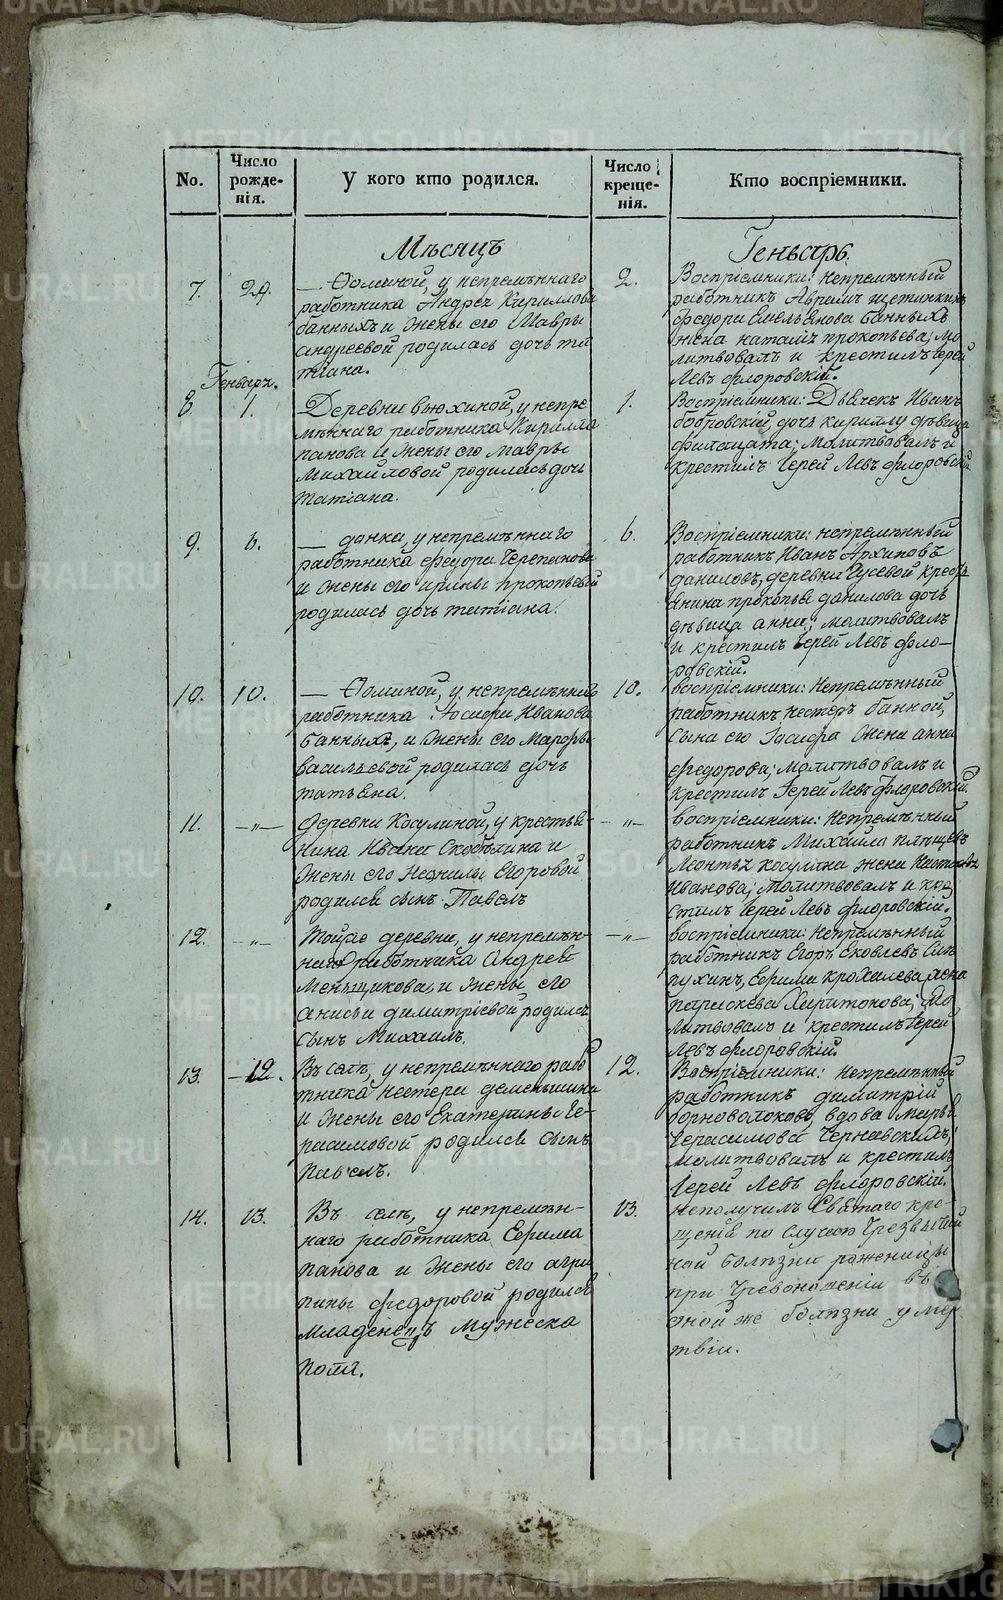 No.
Число рожде-нія.
У кого кто родился.
Число креще-нія.
Кто воспріемники.
Мѣсяцъ
Геньварь.
7.
29.
— Ѳоминой, у непремѣннаго
работника Андрея Кириллова
банныхъ и жены его Мавры
андреевой родилась дочь та
тіана.
2.
Воспріемники: непремѣнный
работникъ Аврамъ щетинкинъ
федора Емельянова банныхъ
жена наталья прокопьева; мо
литвовалъ и крестилъ Іерей
Левъ флоровскій.
Геньварь.
8.
1.
Деревни вьюхиной, у непре
мѣннаго работника Кирилла
панова и жены его мавры
михайловой родилась дочь
татіана.
1.
Воспріемники: Дьячекъ Иванъ
бобровскій, дочь кириллу дѣвица
; молитвовалъ и
крестилъ Іерей Левъ флоровскій
9.
6.
— данка, у непремѣннаго
работника федора Черепанова
и жены его ирины прокопьевой
родилась дочь татіана.
6.
Воспріемники: непремѣнный
работникъ Иванъ Архиповъ
даниловъ, деревни Гусевой кресть
янина прокопья данилова дочь
дѣвица анна; молитвовалъ
и крестилъ Іерей Левъ фло-
ровскій.
10.
10.
— Ѳоминой, у непремѣннаго
работника Іосифа Иванова
банныхъ, и жены его Марфы
васильевой родилась дочь
татьяна.
10.
воспріемники: Непремѣнный
работникъ нестеръ банной,
сына его Іосифа жена анна
федорова; молитвовалъ и
крестилъ Іерей Левъ флоровскій.
11.
—"—
деревни Косулиной, у крестья-
нина Ивана Скобѣлина и
жены его Неонилы Егоровой
родился сынъ Павелъ
—"—
воспріемники: Непремѣнный
работникъ Михайло плѣщевъ
Леонтья косулина жена
иванова; молитвовалъ и кре
стилъ Іерей Левъ флоровскій.
12.
—"—
Тойже деревни, у непремѣн-
наго работника Андрея
Меньщикова, и жены его
анисьи димитріевой родился
сынъ Михаилъ.
—"—
воспріемники: Непремѣнный
работникъ Егоръ Яковлевъ
, Ефима крохалева жена
параскева Харитонова; Мо
литвовалъ и крестилъ Іерей
Левъ флоровскій.
13.
—12.
Въ селѣ, у непремѣннаго рабо
тника нестера деменьшина
и жены его Екатерины Ге-
расимовой родился сынъ
Павелъ.
12.
Воспріемники: Непремѣнный
работникъ димитрій
борноволоковъ, вдова марья
Герасимова Чернавскихъ;
молитвовалъ и крестилъ
Іерей Левъ флоровскій.
14.
13.
Въ селѣ, у непремѣн-
наго работника Ефима
панова и жены его агри
пины федоровой родился
младенецъ мужеска
пола.
13.
Неполучилъ Святаго кре-
щенія по случаю Чрезвычай
ной болѣзни роженицы
при Чревоношеніи въ
оной же болѣзни умер
твіи.